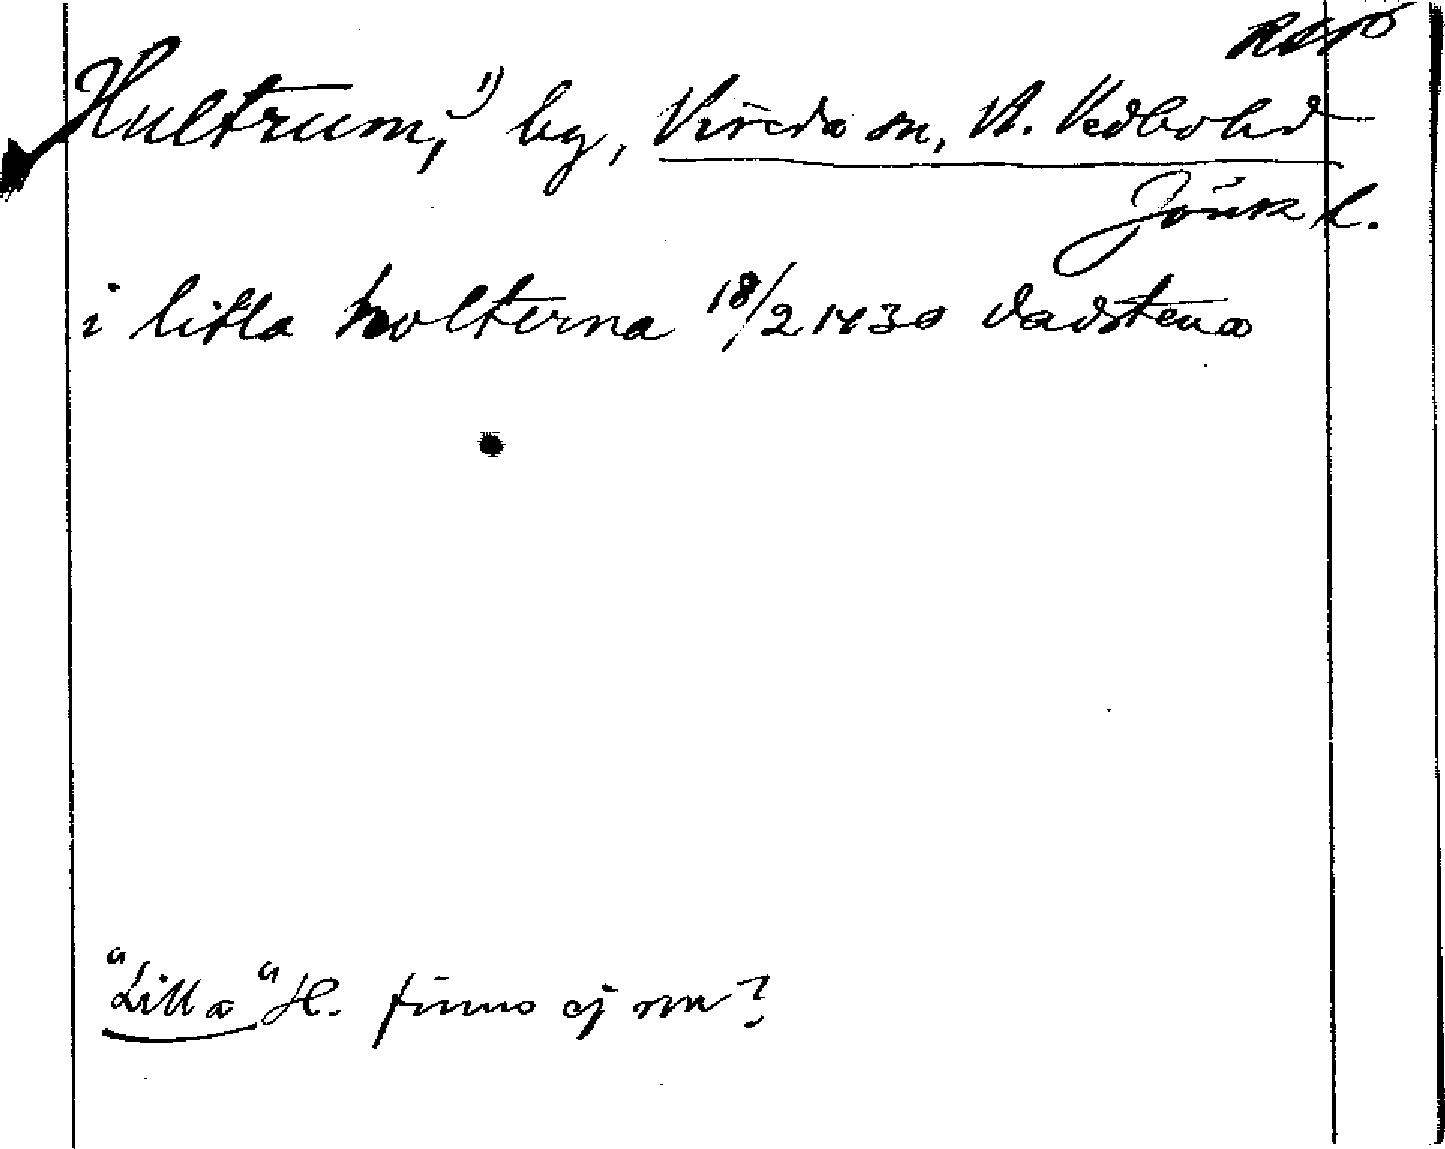 RAP
Hultrum,¹⁾ by, Vireda sn, N. Vedbo hd
Jönk l.
i litla holterna 18/2 1430 Vadstena
"Lilla" H. finns ej nu?